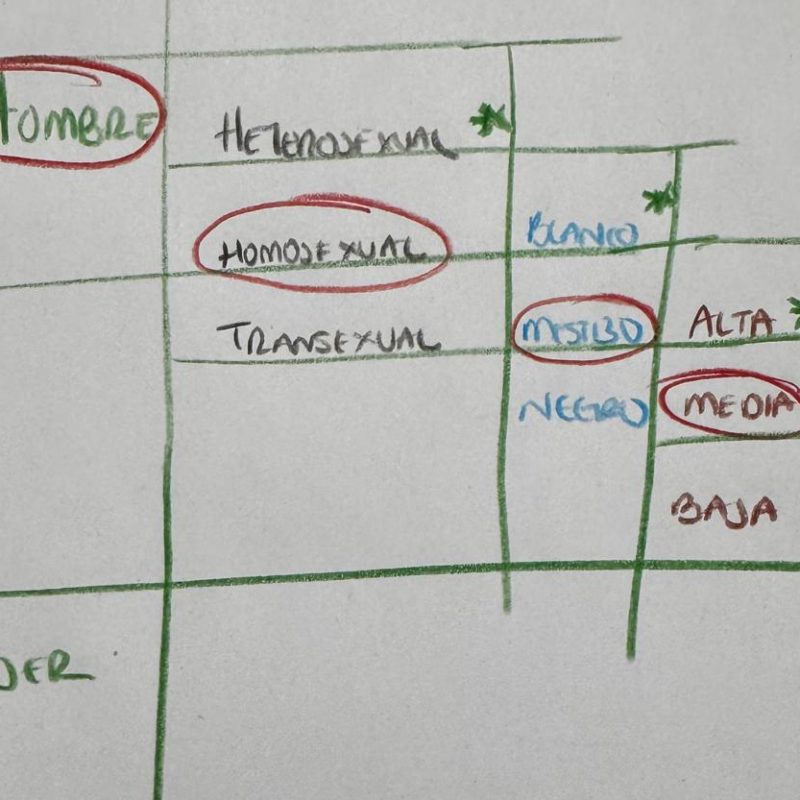 HOMBRE
HETEROSEXUAL *
HOMOSEXUAL
TRANSEXUAL
BLANCO *
MESTIZO
NEGRO
ALTA *
MEDIA
BAJA
JER